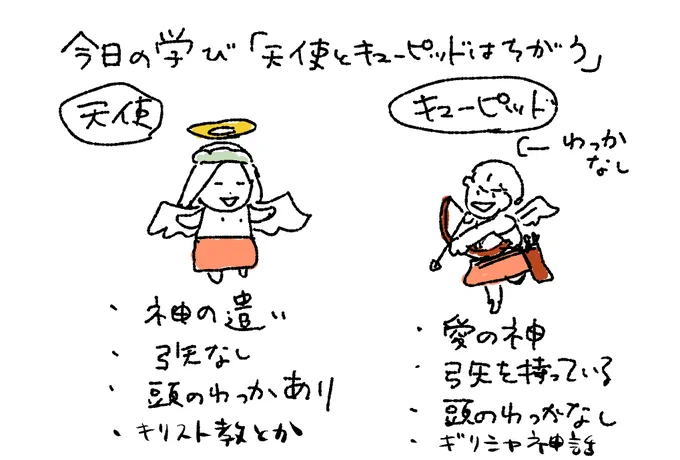 今日の学び「天使とキューピッドはちがう」
天使
キューピッド
わっか
なし
・神の遣い
・弓矢なし
・頭のわっかあり
・キリスト教とか
・愛の神
・弓矢を持っている
・頭のわっかなし
・ギリシャ神話